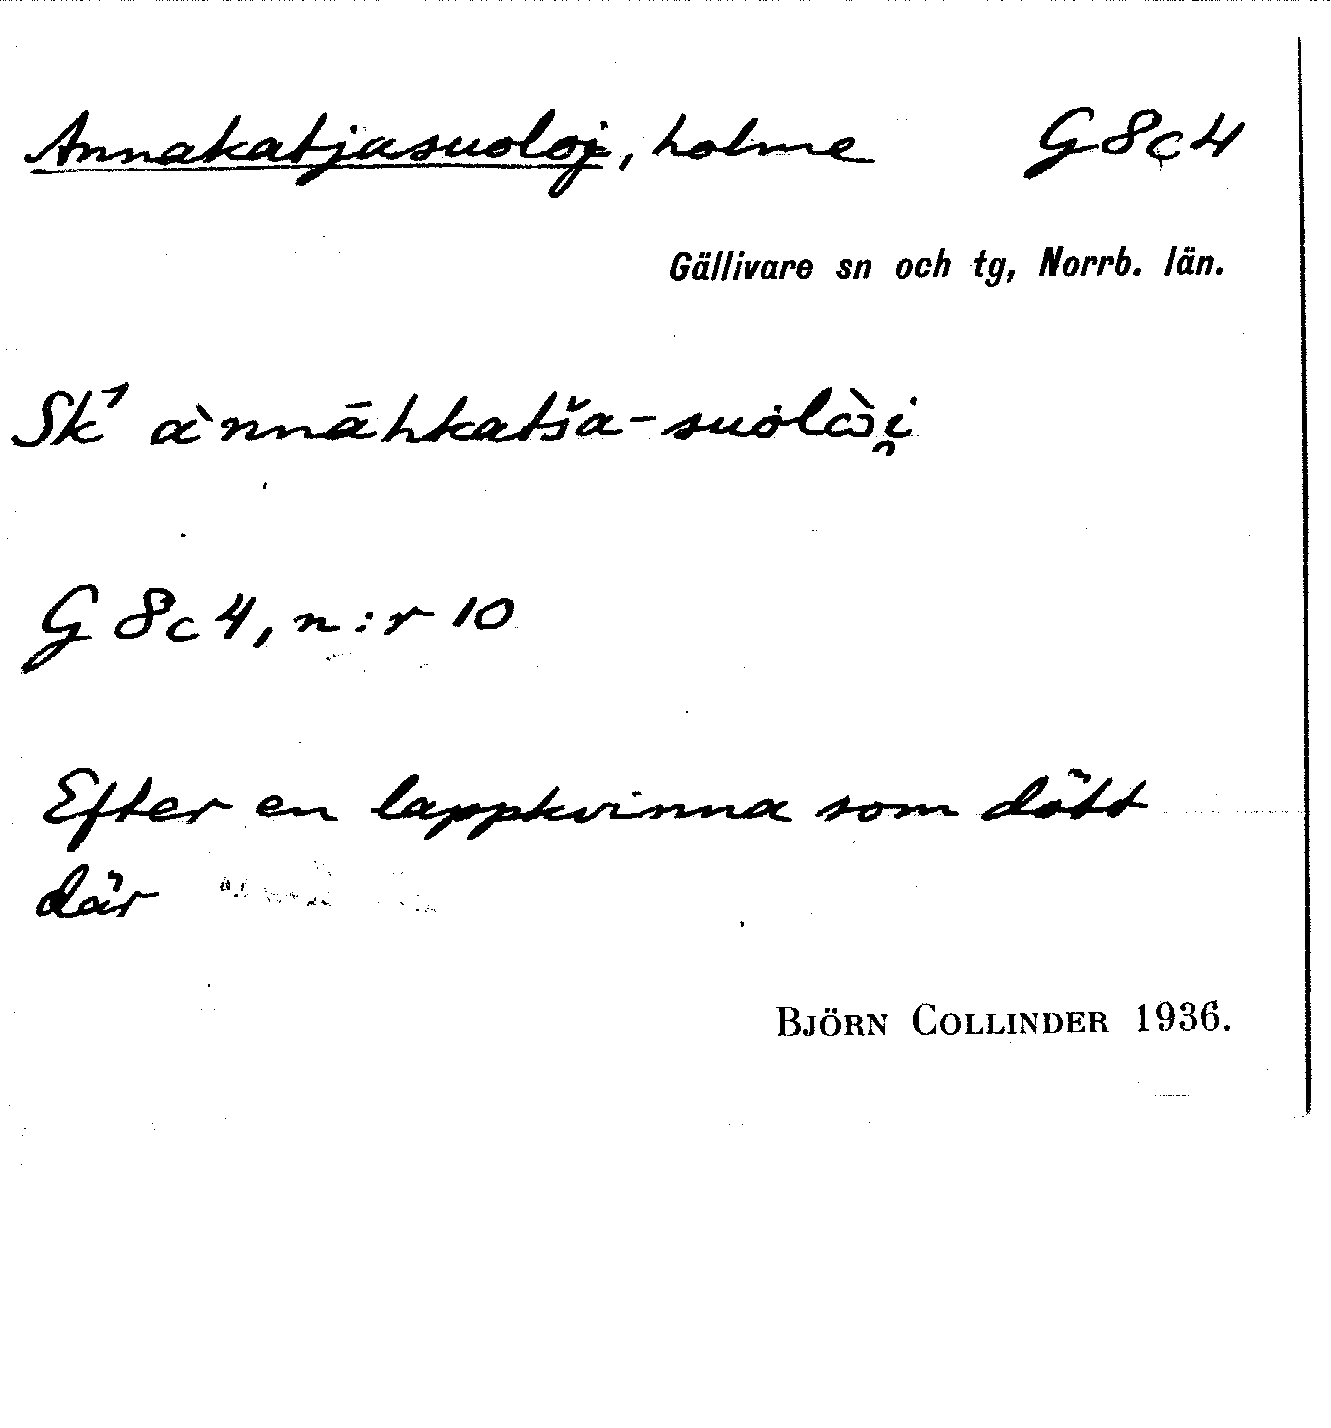 Annakatjasuoloj, holme G8c4
Gällivare sn och tg, Norrb. län.
Sk¹ ànnāhkatša-suȯlɔ̀i̯
G 8c4, n:r 10
Efter en lappkvinna som dött
där
BJÖRN COLLINDER 1936.